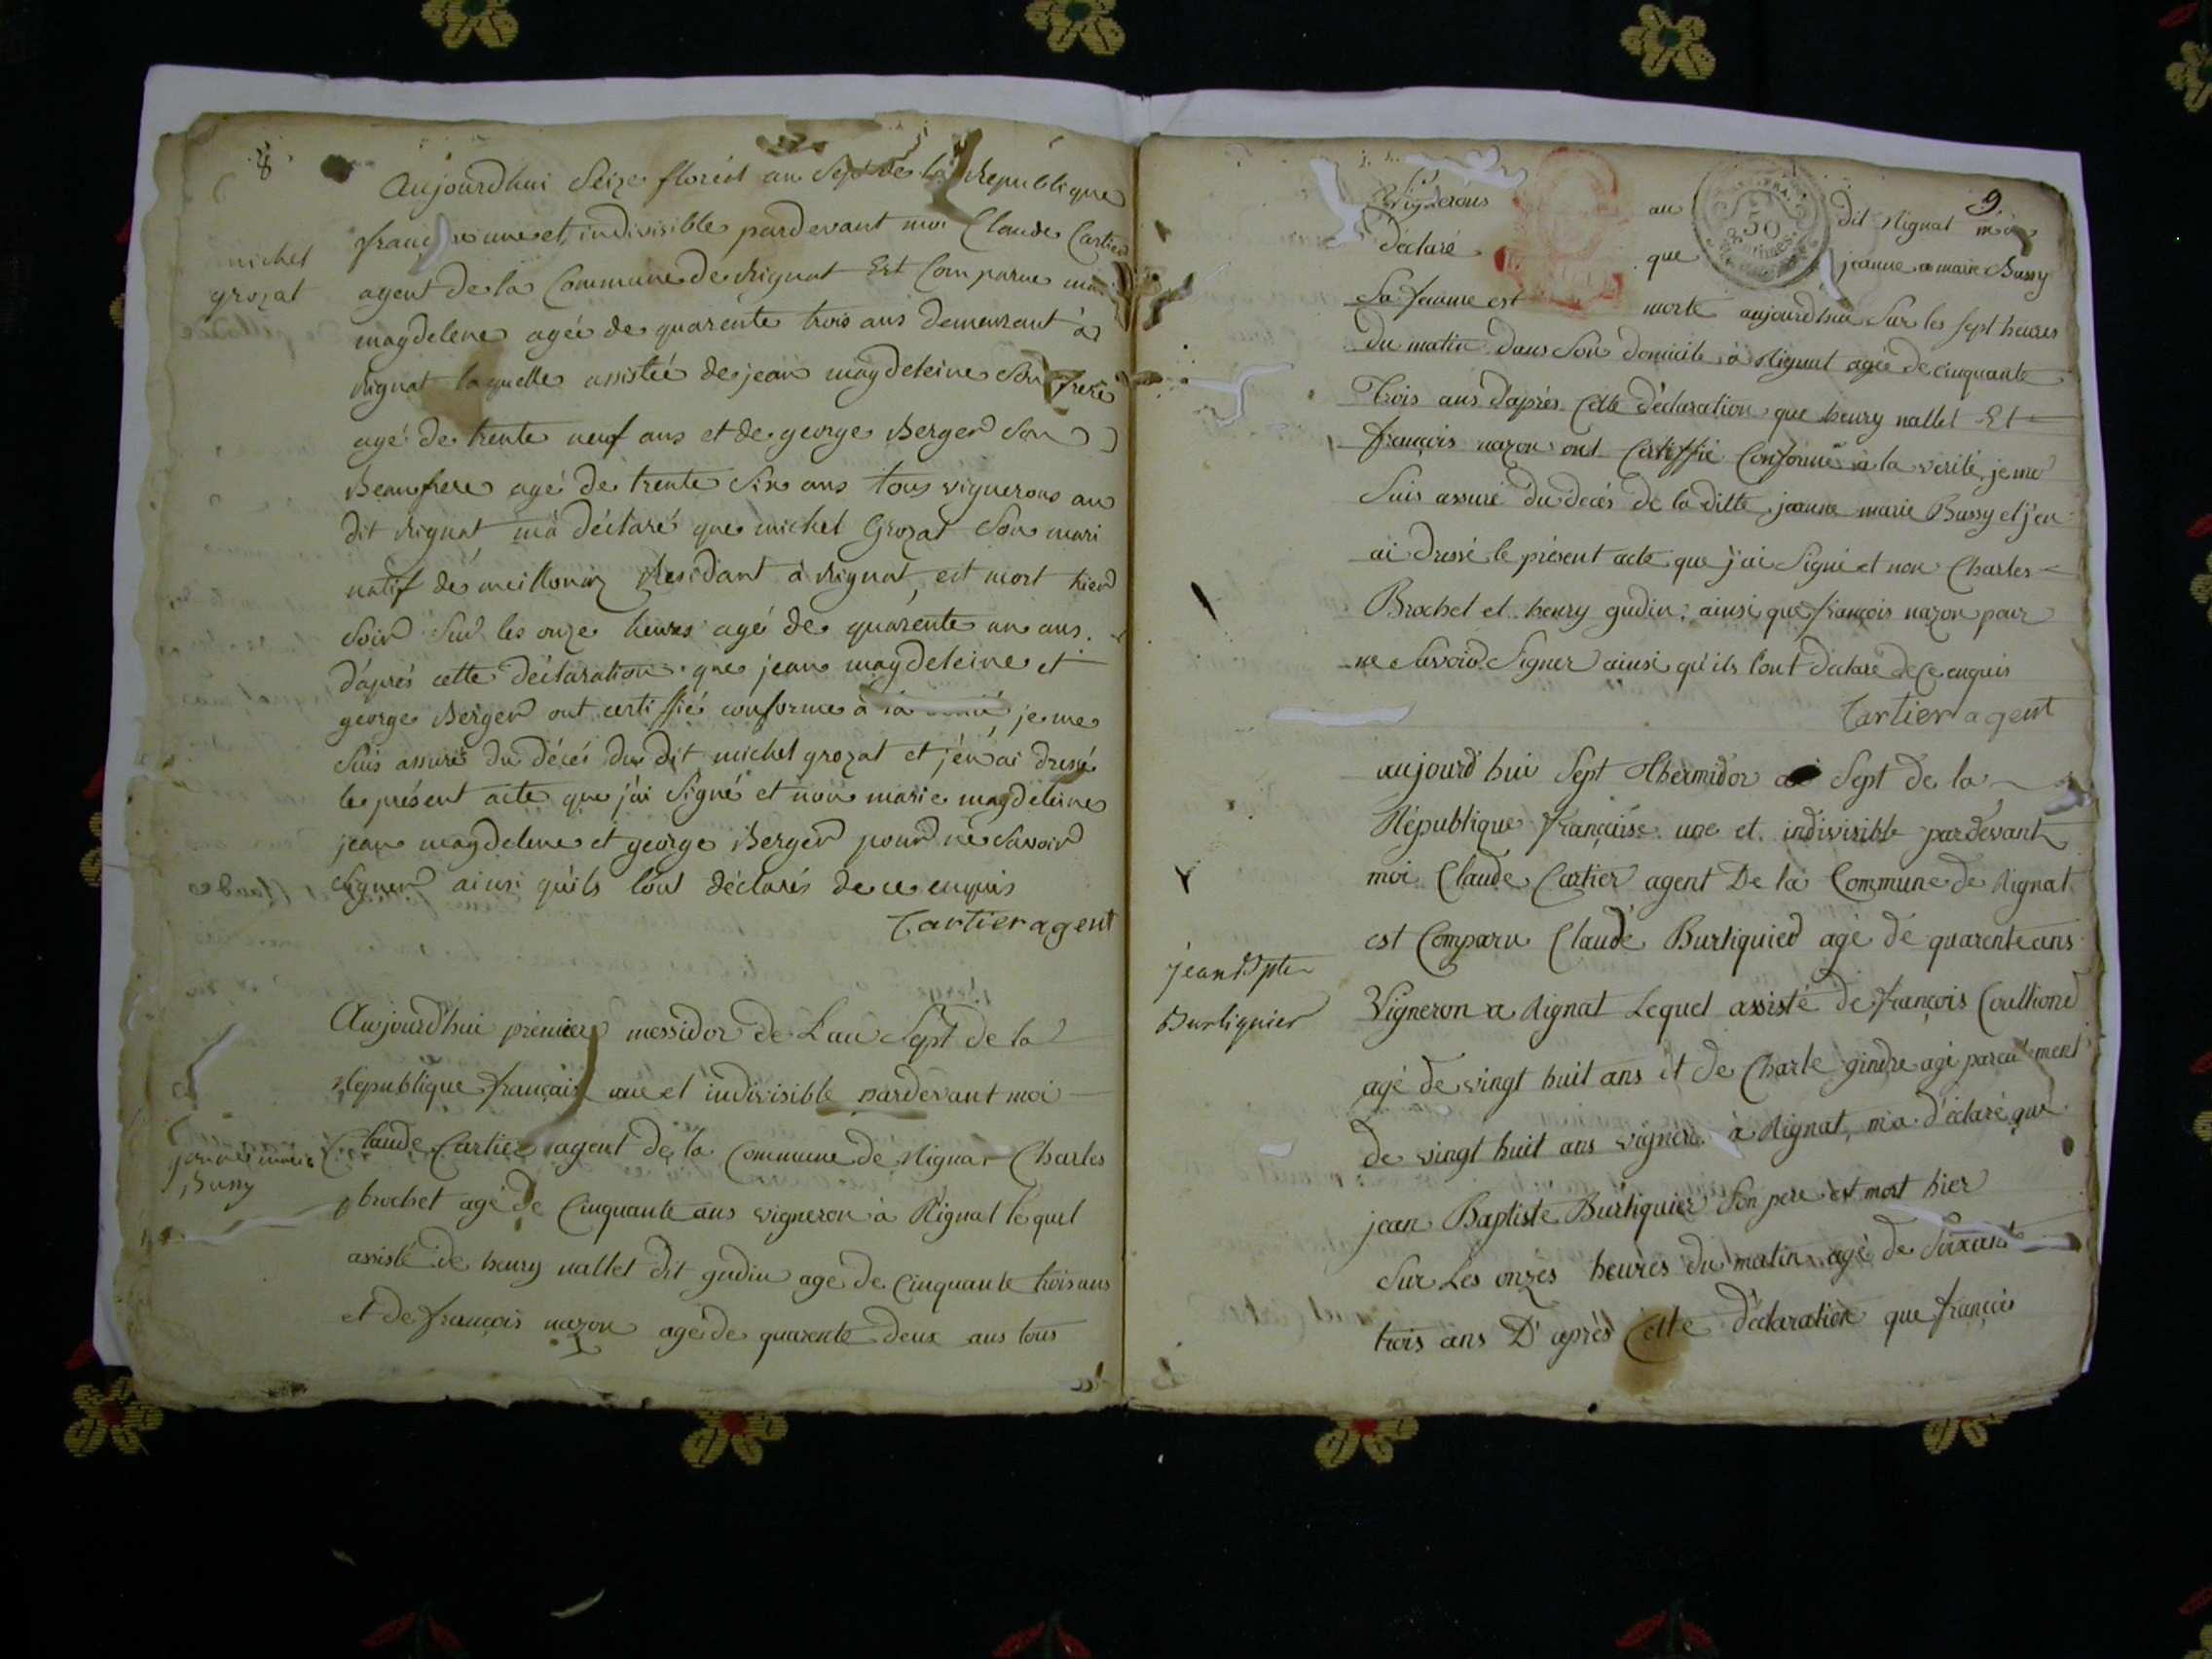 8
Aujourdhui Seize floréal an Sept de la Republique
française une et indivisible pardevant moi Claude Cartier
michel
grozat
agent de la Commune de Rignat Est Comparue
magdelene agée de quarente trois ans demeurant à
Rignat laquelle assistée de jean magdeleine son frere
agé de trente neuf ans et de george Berger Son
Beaufrere agé de trente Six ans tous vignerons au
dit Rignat m'a déclaré que michel Grozat Son mari
natif de meillonaz Residant à Rignat, est mort hier
Soir Sur les onze heures agé de quarente un ans.
d'aprés cette déclaration que jean magdeleine et
george Berger ont certiffié conforme à la je me
Suis assuré du décés du dit michel grozat et j'en ai dressé
le présent acte que j'ai Signé et non marie magdeleine
jean magdelene et george Berger pour ne Savoir
Signer ainsi qu'ils l'ont déclarés de ce enquis
Cartier agent
Aujourd'hui prémier messidor de L'an Sept de la
République française une et indivisible pardevant moi
jeanne marie
Bussy
Claude Cartier agent de la Commune de Rignat Charles
brochet agé de Cinquante ans vigneron à Rignat le quel
assisté de henry nallet dit gudin agé de Cinquante trois ans
et de françois nazon agé de quarente deux ans tous
9
Vignerons au dit Rignat m'a
déclaré que jeanne marie Bussy
Sa femme est morte aujourdhui Sur les sept heures
du matin dans Son domicile à Rignat agée de cinquante
Trois ans d'aprés Cette déclaration que henry nallet Et
françois nazon ont Certiffié Conforme à la verité je me
Suis assuré du decés de la ditte jeanne marie Bussy et j'en
ai dressé le présent acte que j'ai Signé et non Charles
Brochet et henry gudin ainsi que françois nazon pour
ne Savoir Signer ainsi qu'ils l'ont déclaré de ce enquis
Cartier agent
aujourd'hui Sept Thermidor Sept de la
République française une et indivisible pardevant
moi Claude Cartier agent De la Commune de Rignat
est Comparu Claude Burtiquier agé de quarente ans
jean Bpte
Burtiquier
Vigneron a Rignat Lequel assisté de françois
agé de vingt huit ans et de Charle gindre agé pareillement
de vingt huit ans vigneron à Rignat, m'a déclaré que
jean Baptiste Burtiquier Son pere est mort hier
Sur Les onzes heures du matin agé de Soixante
trois ans D'aprés Cette déclaration que françois